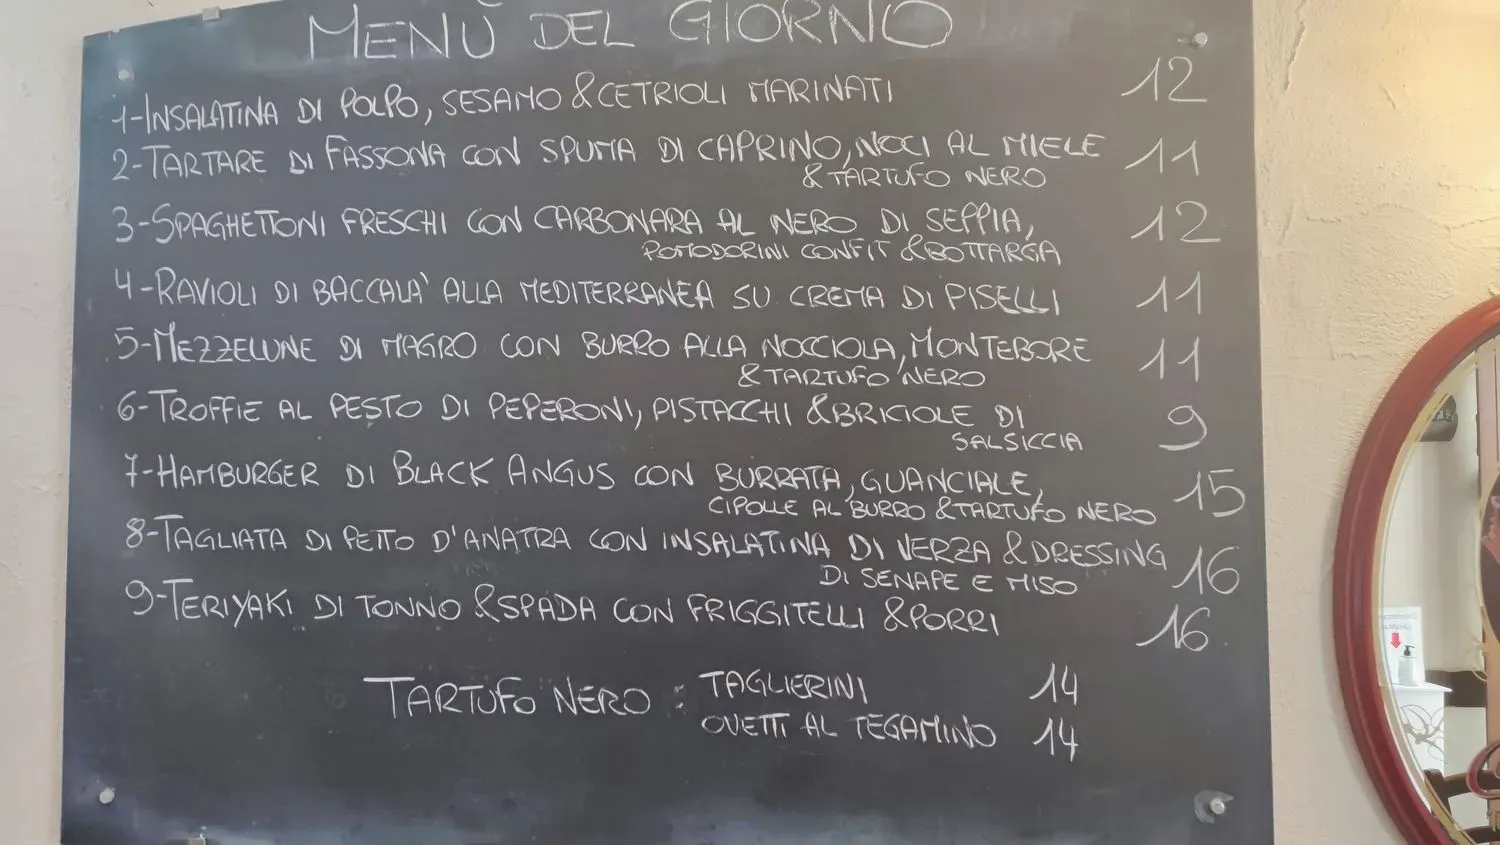 MENÙ DEL GIORNO
1-INSALATINA DI POLPO, SESAMO & CETRIOLI MARINATI 12
2-TARTARE DI FASSONA CON SPUMA DI CAPRINO, NOCI AL MIELE 11
& TARTUFO NERO
3-SPAGHETTONI FRESCHI CON CARBONARA AL NERO DI SEPPIA, 12
POMODORINI CONFIT & BOTTARGA
4-RAVIOLI DI BACCALA' ALLA MEDITERRANEA SU CREMA DI PISELLI 11
5-MEZZELUNE DI MAGRO CON BURRO ALLA NOCCIOLA, MONTEBORE 11
& TARTUFO NERO
6-TROFFIE AL PESTO DI PEPERONI, PISTACCHI & BRICIOLE DI 9
SALSICCIA
7-HAMBURGER DI BLACK ANGUS CON BURRATA, GUANCIALE, 15
CIPOLLE AL BURRO & TARTUFO NERO
8-TAGLIATA DI PETTO D'ANATRA CON INSALATINA DI VERZA & DRESSING 16
DI SENAPE E MISO
9-TERIYAKI DI TONNO & SPADA CON FRIGGITELLI & PORRI 16
TARTUFO NERO: TAGLIERINI 14
OVETTI AL TEGAMINO 14